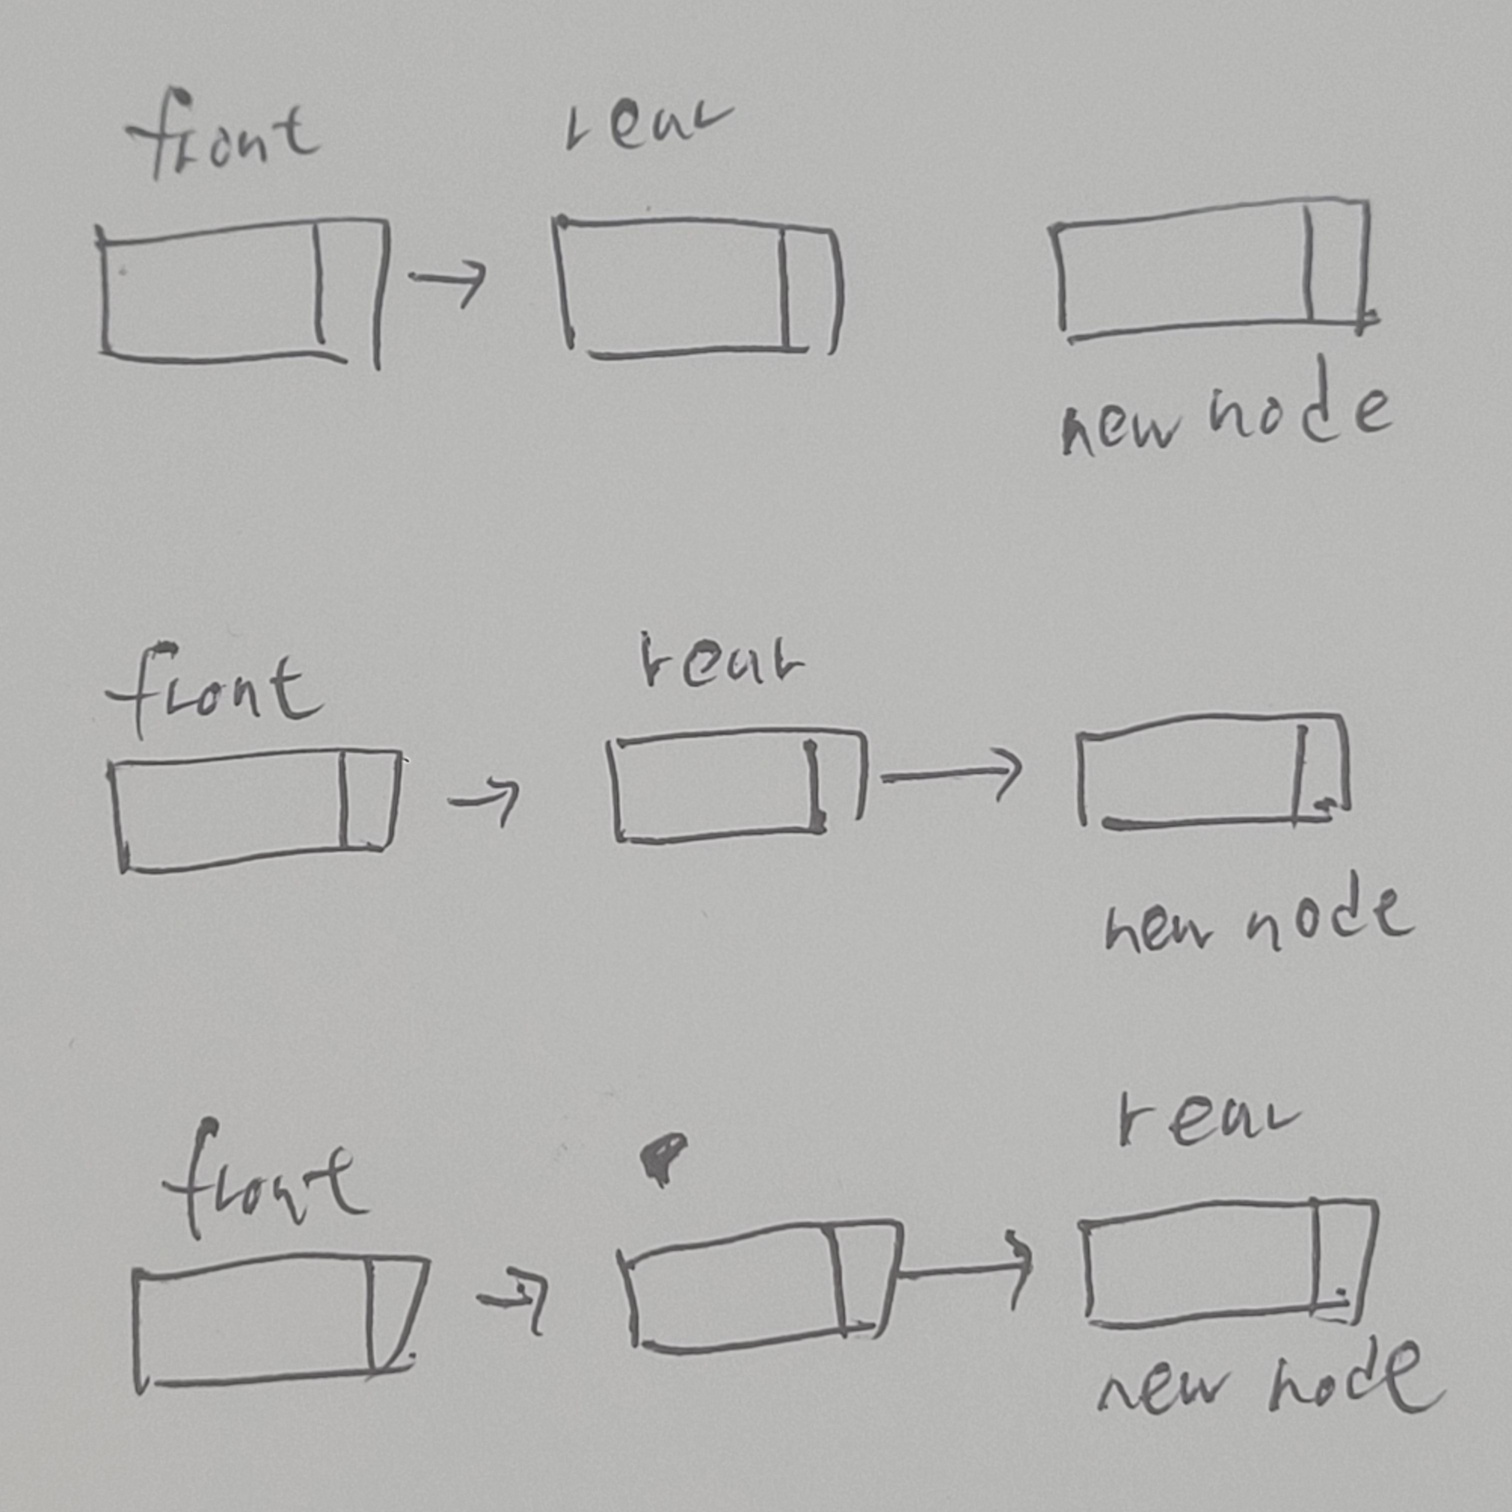 front rear
new node
front rear
new node
rear
front
new node